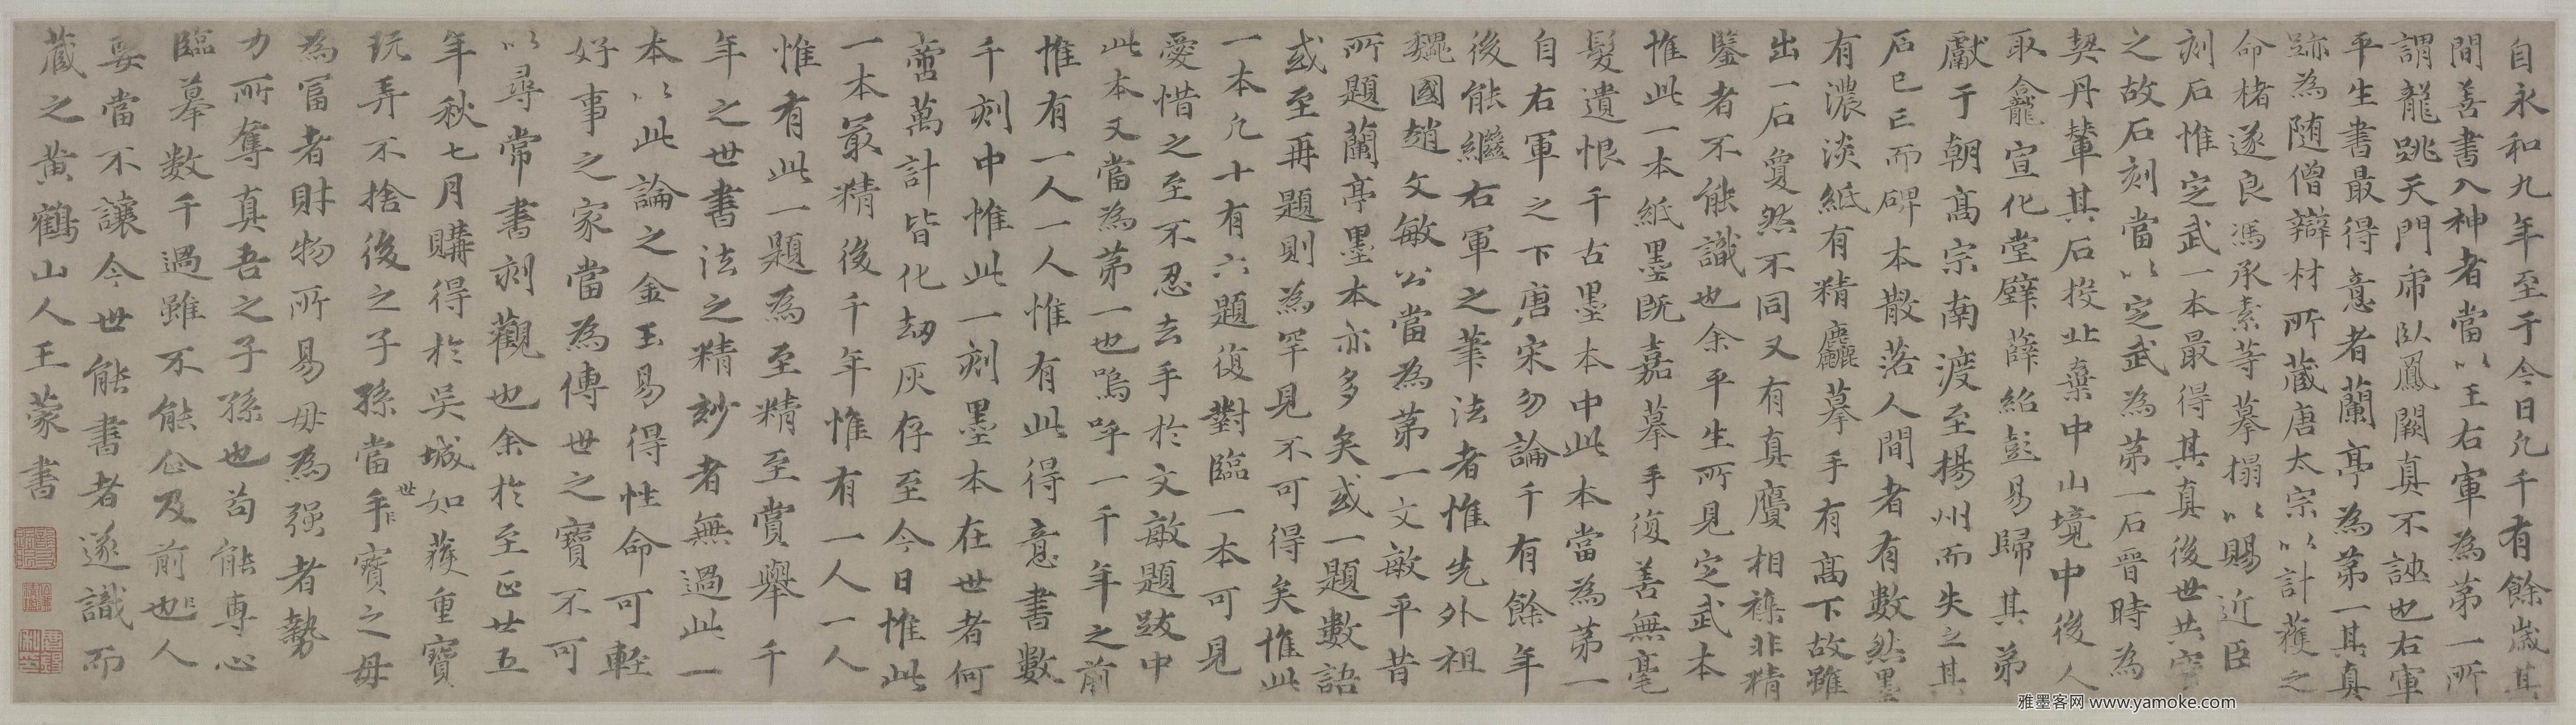 自永和九年至于今日凡千有餘歲其
間善書入神者當以王右軍為第一所
謂龍跳天門帍臥鳳闕真不誣也右軍
平生書最得意者蘭亭為第一其真
跡為随僧辯材所藏唐太宗以計獲之
命褚遂良馮承素等摹搨以賜近臣
刻石惟定武一本最得其真後世共寶
之故石刻當以定武為第一石晋時為
契丹輦其石投止棄中山境中後人
取龕宣化堂壁薛紹彭易歸其弟
獻于朝高宗南渡至揚州而失之其
石已亡而碑本散落人間者有數然墨
有濃淡紙有精麤摹手有高下故雖
出一石敻然不同又有真贗相襍非精
鑒者不能識也余平生所見定武本
惟此一本紙墨既嘉摹手復善無毫
髮遺恨千古墨本中此本當為第一
自右軍之下唐宋勿論千有餘年
後能繼右軍之筆法者惟先外祖
魏國趙文敏公當為第一文敏平昔
所題蘭亭墨本亦多矣或一題數語
或至再題則為罕見不可得矣惟此
一本凡十有六題復對臨一本可見
愛惜之至不忍去手於文敏題跋中
此本又當為第一也嗚呼一千年之前
惟有一人一人惟有此得意書數
千刻中惟此一刻墨本在世者何
啻萬計皆化劫灰存至今日惟此
一本最精後千年惟有一人一人
惟有此一題為至精至賞舉千
年之世書法之精妙者無過此一
本以此論之金玉易得性命可輕
好事之家當為傳世之寶不可
以尋常書刻觀也余於至正廿五
年秋七月購得於吴城如獲重寶
玩弄不捨後之子孫當世手寶之毋
為富者財物所易毋為强者勢
力所奪真吾之子孫也苟能專心
臨摹数千過雖不能企及前也人
要當不讓今世能書者遂識而
藏之黄鶴山人王蒙書
雅墨客网 www.yamoke.com